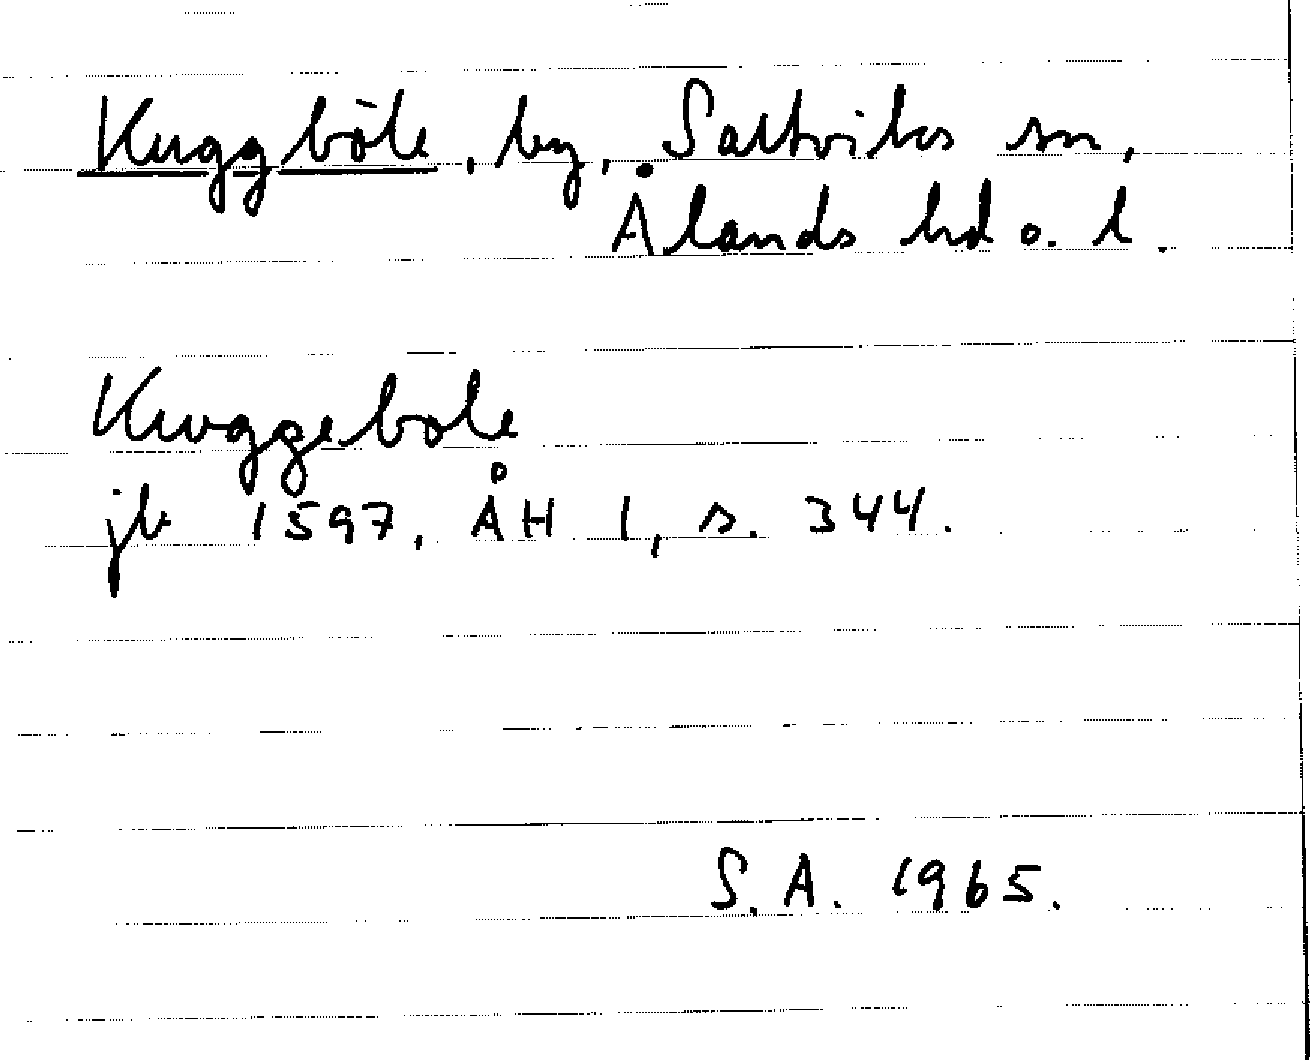 Kuggböle, by, Saltviks sn,
Ålands hd o. l.
Kuggebole
jb 1597, ÅH 1, s. 344.
S.A. 1965.